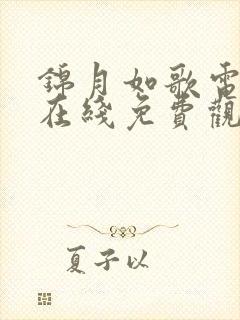 錦月如歌電
在綫免費觀
夏子以